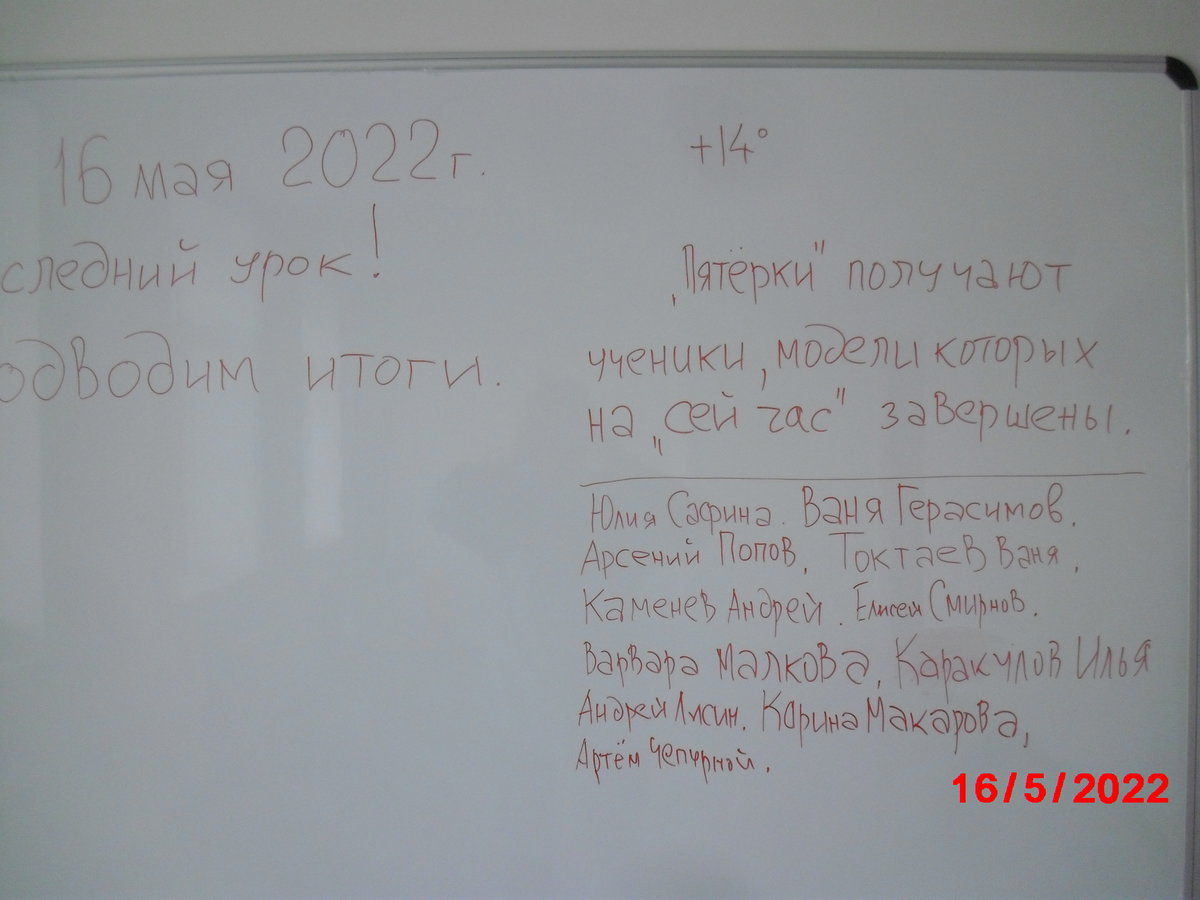 16 мая 2022г.
следний урок!
одводим итоги.
+14°
„Пятёрки" получают
ученики, модели которых
на „сей час" завершены.
Юлия Сафина. Ваня Герасимов.
Арсений Попов, Токтаев Ваня,
Каменев Андрей. Елисей Смирнов.
Варвара Малкова, Каракулов Илья
Андрей Карина Макарова,
Артём Чепурной.
16/5/2022